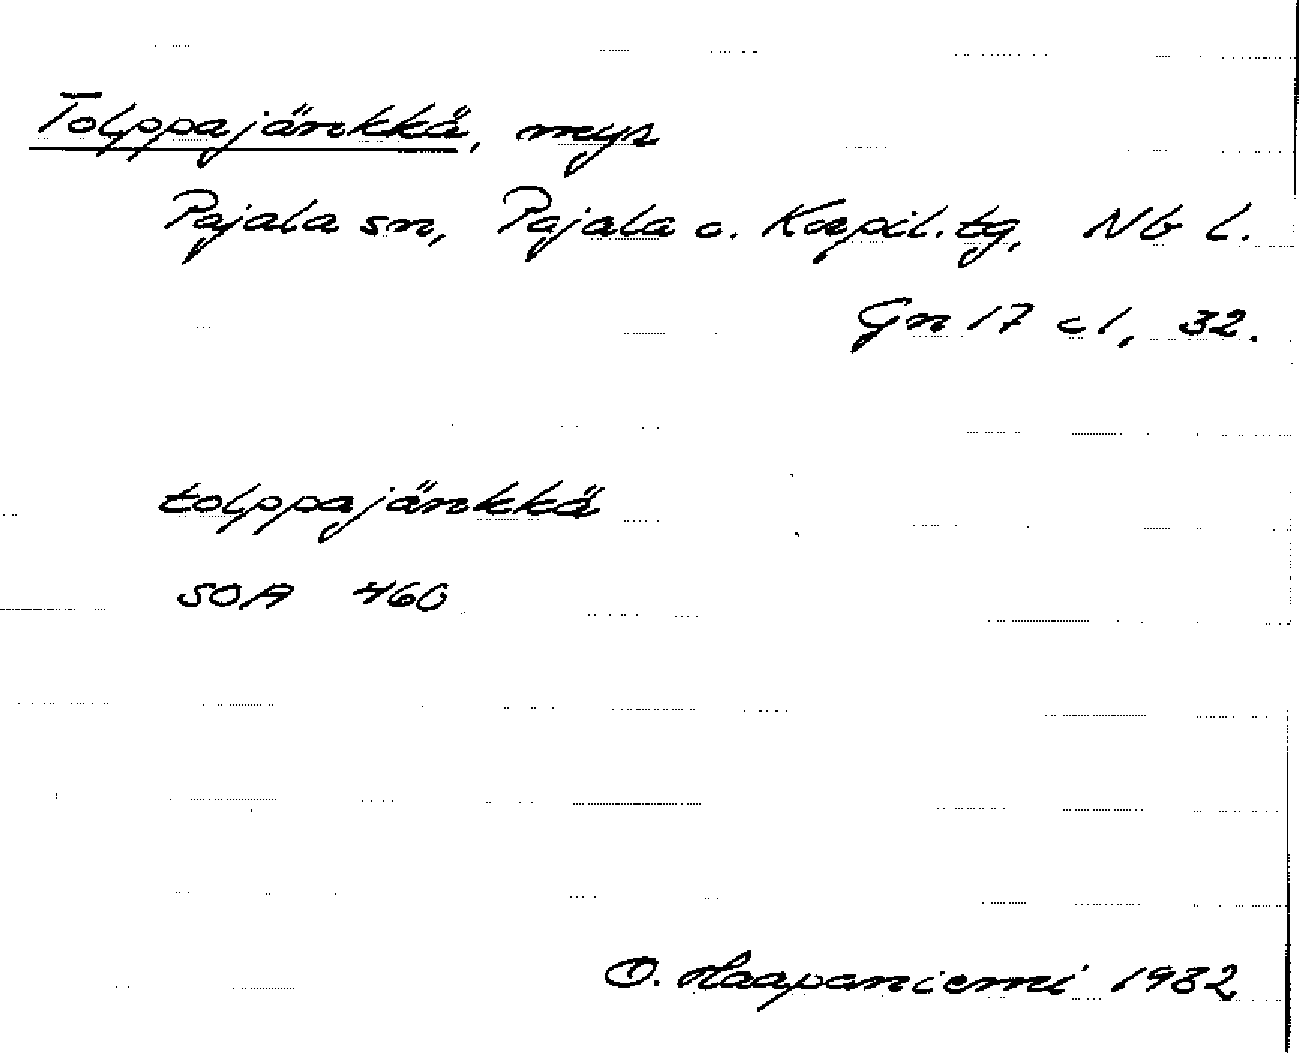 Tolppajänkkä, myr
Pajala sn, Pajala o. Korpil. tg, Nb l.
Gn 17 c1, 32.
tolppajänkkä
SOA 460
O. Haapaniemi 1932